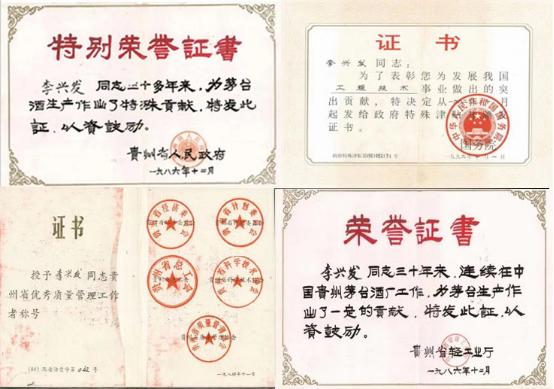 特别荣誉証書
李兴发 同志三十多年来，为茅台
酒生产作出了特殊贡献，特发此
証，以资鼓励。
贵州省人民政府
一九八六年十二月
证书
李兴发同志：
为了表彰您为发展我国
工程技术 事业做出的突
出贡献，特决定从一九
起发给政府特殊津贴
证书。
国务院
证书
授予李兴发同志贵
州省优秀质量管理工作
者称号
贵州省经济委员会
贵州省总工会
贵州省科学技术协会
荣誉証書
李兴发 同志三十年来，连续在中
国贵州茅台酒厂工作，为茅台生产作
出了一定的贡献，特发此証，以
资鼓励。
贵州省轻工业厅
一九八六年十二月